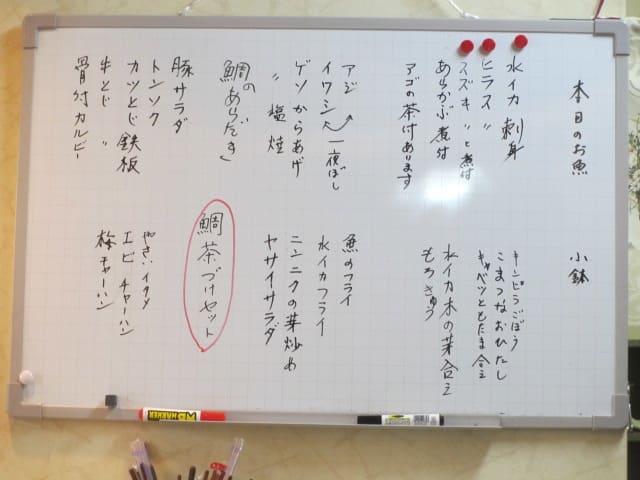 本日のお魚
水イカ 刺身
ヒラス 〃
スズキ 〃と煮付
あらかぶ煮付
アゴの茶付あります
アジ
イワシ 一夜ぼし
ゲソからあげ
〃 塩焼
鯛のあらだき
豚サラダ
トンソク
カツとじ鉄板
牛とじ 〃
骨付カルビー
小鉢
キンピラごぼう
こまつなおひたし
キャベツとたま合え
水イカ木の芽合え
もろきゅう
魚のフライ
水イカフライ
ニンニクの芽炒め
ヤサイサラダ
鯛茶づけセット
エビチャーハン
梅チャーハン
MARKER